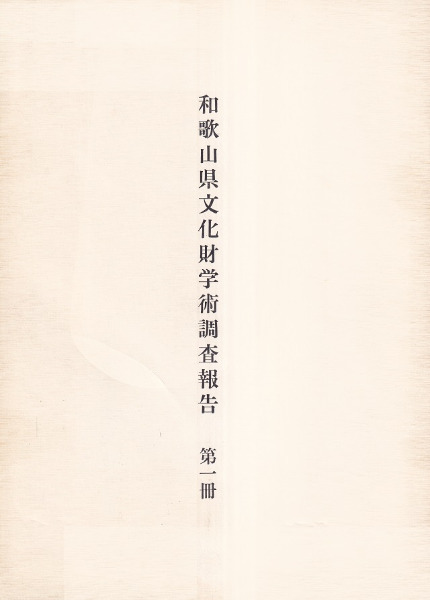 和歌山県文化財学術調査報告　第一冊